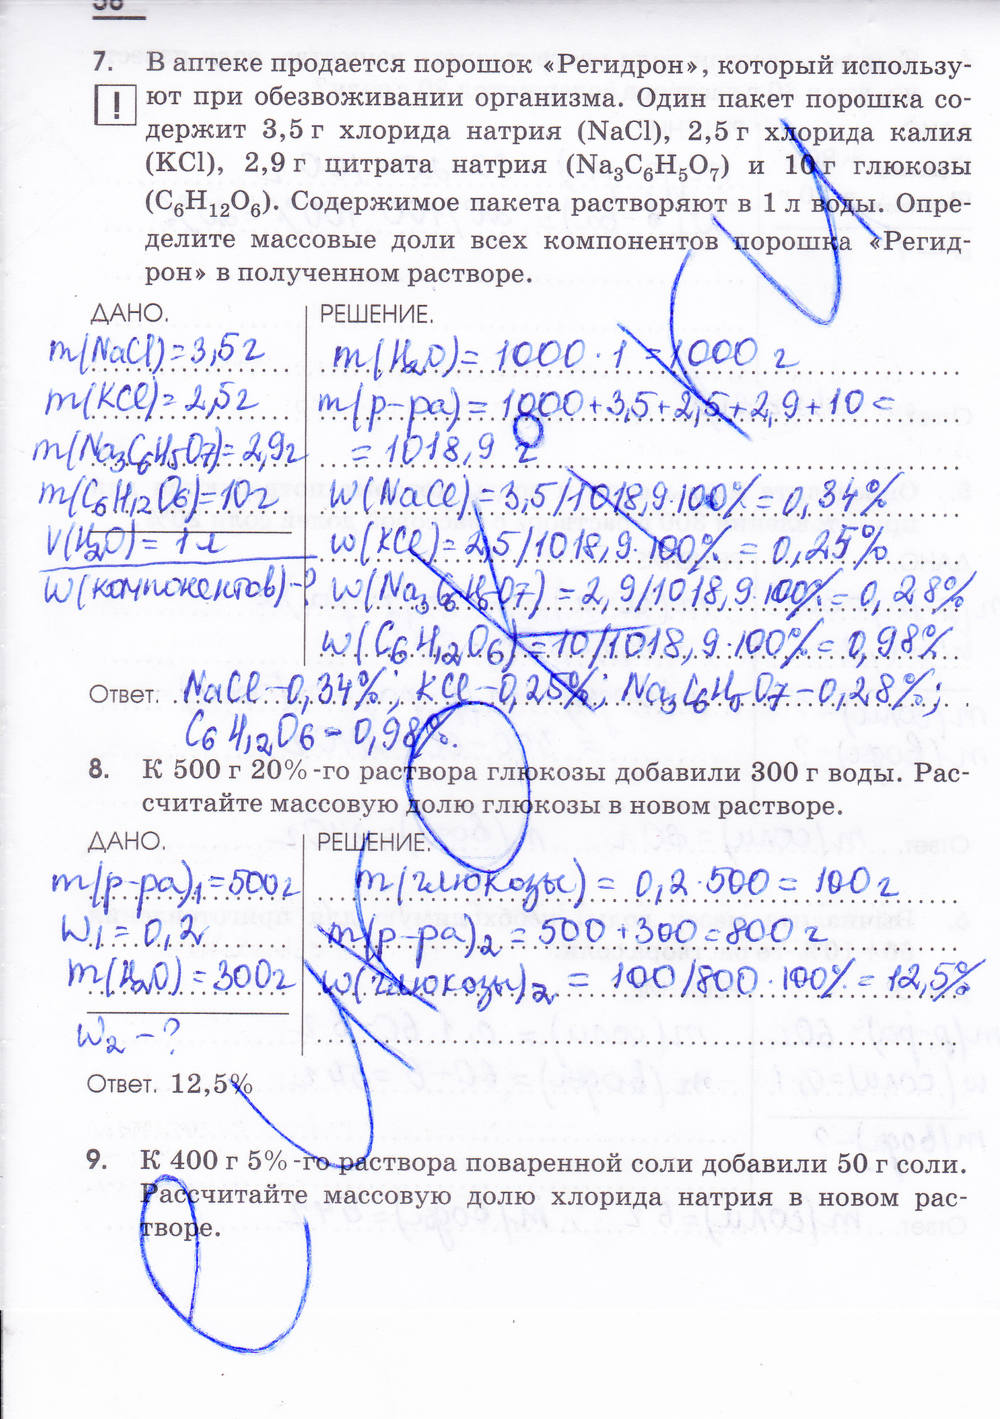 7. В аптеке продается порошок «Регидрон», который использу-
! ют при обезвоживании организма. Один пакет порошка со-
держит 3,5 г хлорида натрия (NaCl), 2,5 г хлорида калия
(KCl), 2,9 г цитрата натрия (Na₃C₆H₅O₇) и 10 г глюкозы
(C₆H₁₂O₆). Содержимое пакета растворяют в 1 л воды. Опре-
делите массовые доли всех компонентов порошка «Регид-
рон» в полученном растворе.
ДАНО.
m(NaCl)=3,5г
m(KCl)=2,5г
m(Na₃C₆H₅O₇)=2,9г
m(C₆H₁₂O₆)=10г
V(H₂O)=1л
w(компонентов)-?
РЕШЕНИЕ.
m(H₂O)=1000·1=1000 г
m(р-ра)=1000+3,5+2,5+2,9+10=
=1018,9 г
w(NaCl)=3,5/1018,9·100%=0,34%
w(KCl)=2,5/1018,9·100%=0,25%
w(Na₃C₆H₅O₇)=2,9/1018,9·100%=0,28%
w(C₆H₁₂O₆)=10/1018,9·100%=0,98%
Ответ. NaCl-0,34%; KCl-0,25%; Na₃C₆H₅O₇-0,28%;
C₆H₁₂O₆-0,98%.
8. К 500 г 20%-го раствора глюкозы добавили 300 г воды. Рас-
считайте массовую долю глюкозы в новом растворе.
ДАНО.
m(р-ра)₁=500г
w₁=0,2
m(H₂O)=300г
w₂-?
РЕШЕНИЕ.
m(глюкозы)=0,2·500=100г
m(р-ра)₂=500+300=800г
w(глюкозы)₂=100/800·100%=12,5%
Ответ. 12,5%
9. К 400 г 5%-го раствора поваренной соли добавили 50 г соли.
Рассчитайте массовую долю хлорида натрия в новом рас-
творе.